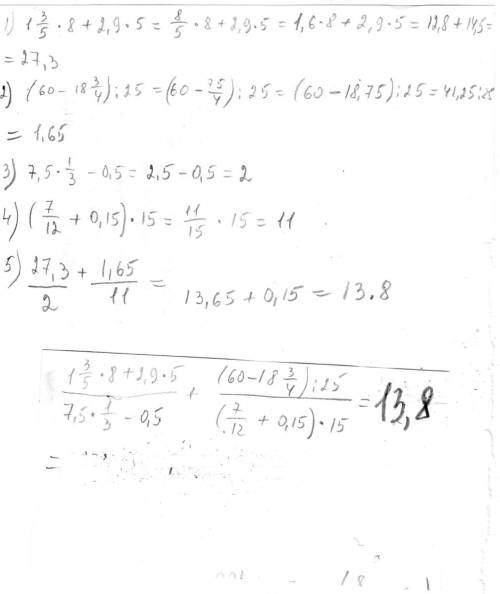 1) 1 3/5 · 8 + 2,9 · 5 = 8/5 · 8 + 2,9 · 5 = 1,6 · 8 + 2,9 · 5 = 12,8 + 14,5 =
= 27,3
2) (60 - 18 3/4) : 25 = (60 - 75/4) : 25 = (60 - 18,75) : 25 = 41,25 : 25
= 1,65
3) 7,5 · 1/3 - 0,5 = 2,5 - 0,5 = 2
4) (7/12 + 0,15) · 15 = 11/15 · 15 = 11
5) 27,3/2 + 1,65/11 = 13,65 + 0,15 = 13.8
(1 3/5 · 8 + 2,9 · 5)/(7,5 · 1/3 - 0,5) + ((60 - 18 3/4) : 25)/((7/12 + 0,15) · 15) = 13,8
=